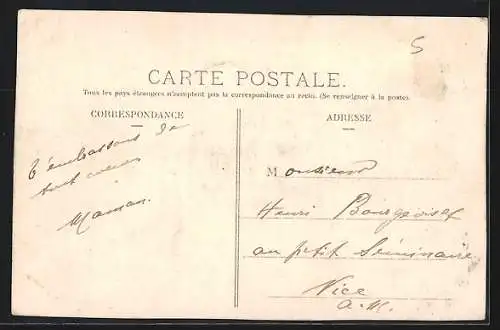 5
CARTE POSTALE.
Tous les pays étrangers n'acceptent pas la correspondance au recto. (Se renseigner à la poste).
CORRESPONDANCE
ADRESSE
T'embrassons de
tout cœur
Maman.
Monsieur
Henri Bourgeois
au petit Séminaire
Nice
A.M.